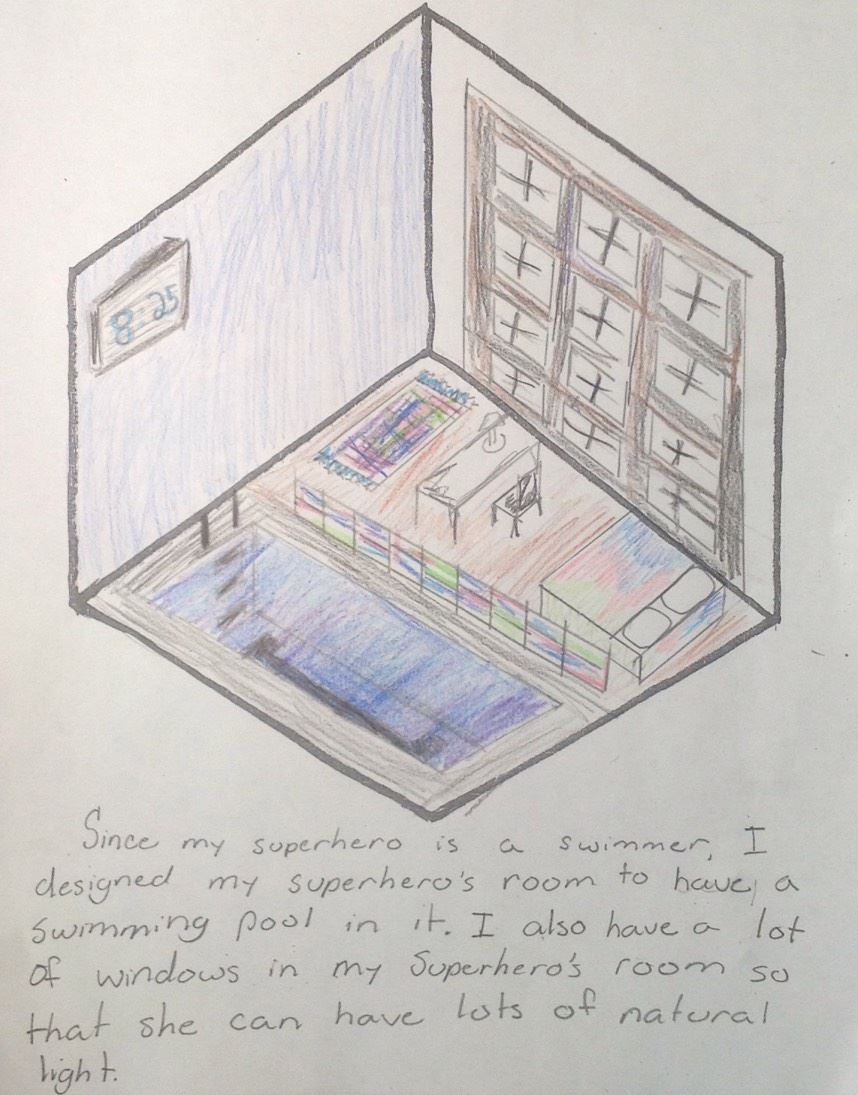 8:25
Since my superhero is a swimmer, I
designed my superhero's room to have, a
swimming pool in it. I also have a lot
of windows in my Superhero's room so
that she can have lots of natural
light.